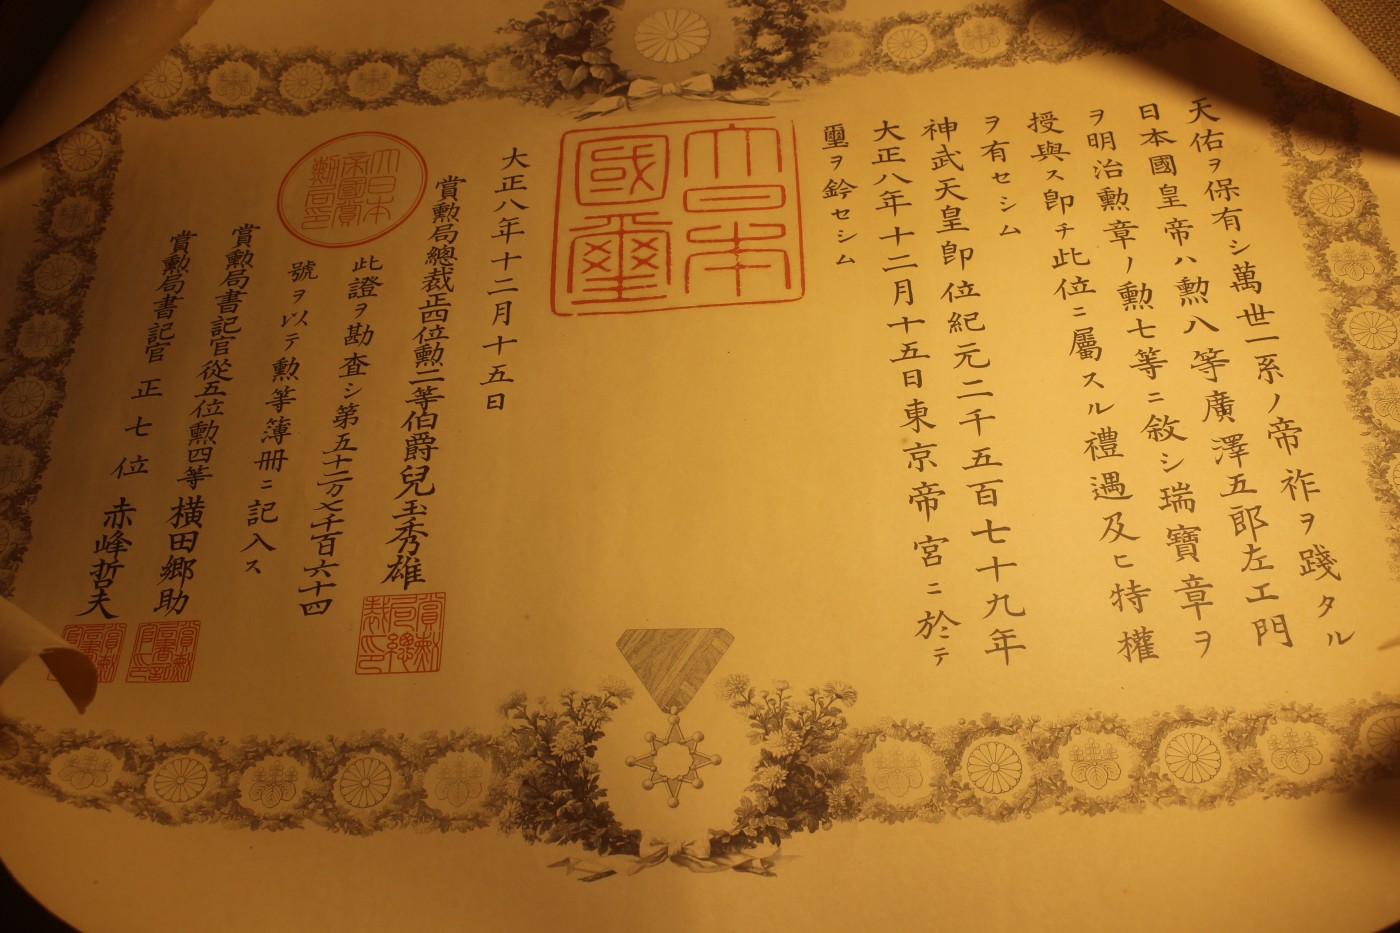 天佑ヲ保有シ萬世一系ノ帝祚ヲ踐タル
日本國皇帝ハ勲八等廣澤五郎左エ門
ヲ明治勲章ノ勲七等ニ敘シ瑞寶章ヲ
授與ス卽チ此位ニ屬スル禮遇及ヒ特權
ヲ有セシム
神武天皇卽位紀元二千五百七十九年
大正八年十二月十五日東京帝宮ニ於テ
璽ヲ鈐セシム
大日本
國璽
大正八年十二月十五日
賞勲局總裁正四位勲二等伯爵兒玉秀雄
賞勲局總裁印
此證ヲ勘査シ第五十二万七千百六十四
號ヲ以テ勲等簿册ニ記入ス
大日本
帝國賞
勲局印
賞勲局書記官從五位勲四等橫田郷助
賞勲局書記官正七位赤峰哲夫